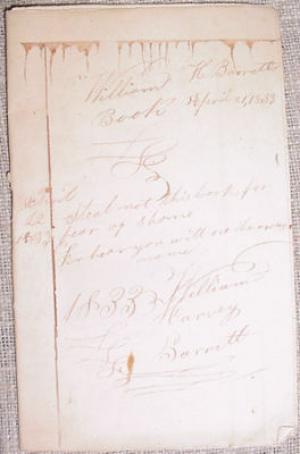 William H Barrett
Book April 21, 1833
April
22 Steal not this book for
1833 fear of shame
For hear you will see the owners
name
1833 William
Harvey
Barrett